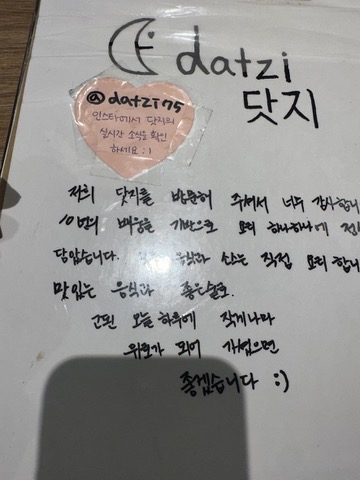 datzi
닷지
@datzi75
인스타에서 닷지의
실시간 소식을 확인
하세요 :)
저희 닷지를 방문해 주셔서 너무 감사합니
10년의 배움을 기반으로 요리 하나하나에
담았습니다. 음식과 소스는 직접 요리 합니
맛있는 음식과 좋은술로
고된 오늘 하루에 작게나마
위로가 되어 가셨으면
좋겠습니다 :)